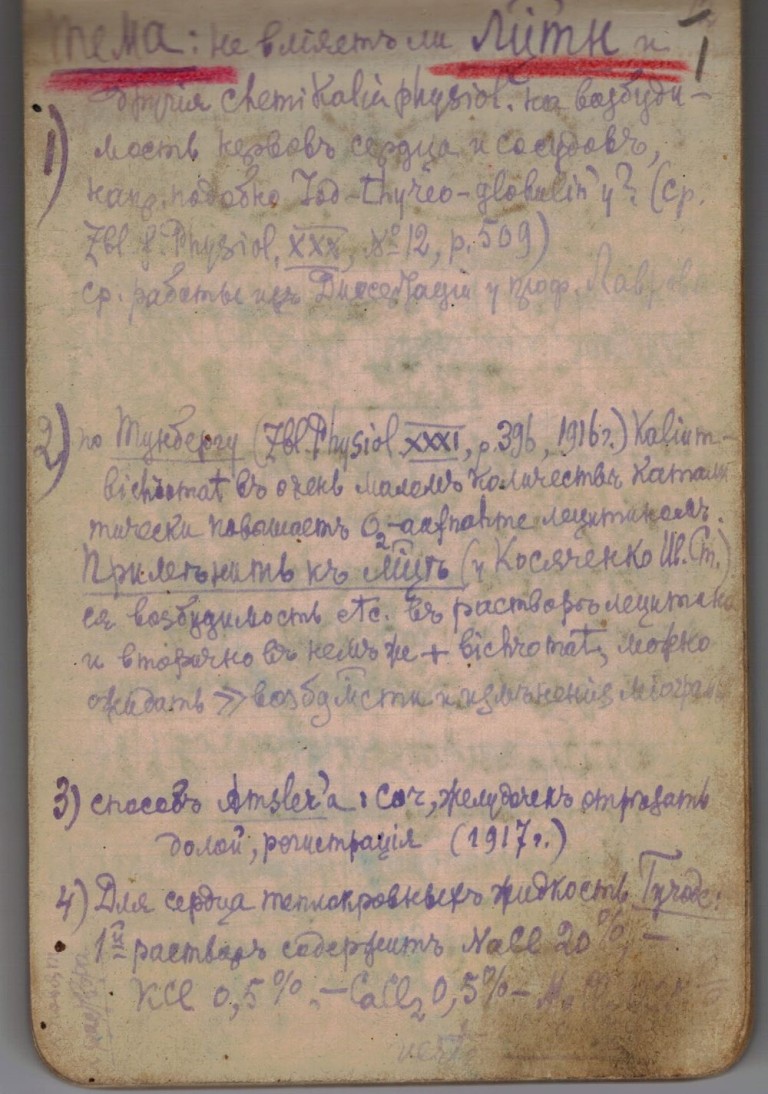 Тема: не влiяетъ ли Лiитн и
другiя chemikalia physiol. на возбуди-
1) мость нервовъ сердца и сосудовъ,
напр. подобно Jod-thyreo-globulin'у? (Ср.
Zbl. f. Physiol, XXX, № 12, p. 509)
ср. работы изъ Диссертацiи у проф. Лаврова
2) по Тунбергу (Zbl. Physiol XXXI, p. 396, 1916 г.) Kalium-
bichromat въ очень маломъ количествѣ катали
тически повышаетъ O2- лецитиномъ.
Примѣнить къ (у Косяченко
ея возбудимость etc. въ растворѣ лецитина
и вторично въ немъ же + bichromat, можно
ожидать > возбудимости и измѣненiя мiограм
3) способъ Amsler'а: Cor, желудочекъ отрѣзать
долой, регистрацiя (1917 г.)
4) Для сердца теплокровныхъ жидкость
1ый растворъ содержитъ NaCl 20%, —
KCl 0,5%, — CaCl2 0,5% —